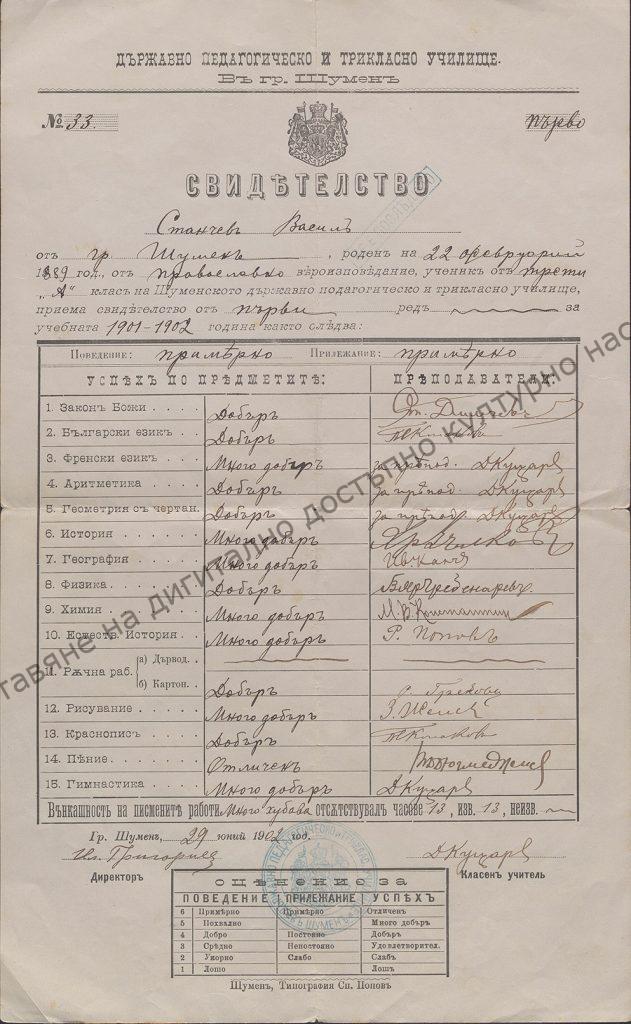 ДЪРЖАВНО ПЕДАГОГИЧЕСКО И ТРИКЛАСНО УЧИЛИЩЕ.
Въ гр. Шуменъ
№ 33. първо
СВИДѢТЕЛСТВО
Станчевъ Василъ
отъ гр. Шуменъ, роденъ на 22 февруарий
1889 год., отъ православно вѣроизповѣдание, ученикъ отъ трети
„А" класъ на Шуменското държавно педагогическо и трикласно училище,
приема свидѣтелство отъ първи редъ за
учебната 1901-1902 година както слѣдва:
Поведение: примѣрно Прилежание: примѣрно
УСПѢХЪ ПО ПРѢДМЕТИТѢ: ПРѢПОДАВАТЕЛИ:
1. Законъ Божи . . . . Добъръ
2. Български езикъ . . . Добъръ
3. Френски езикъ . . . Много добъръ за прѣпод. ДКуцаровъ
4. Аритметика . . . . Добъръ за прѣпод. ДКуцаровъ
5. Геометрия съ чертан. Добъръ за прѣпод. ДКуцаровъ
6. История . . . . . Много добъръ
7. География . . . . . Много добъръ
8. Физика . . . . . . Добъръ
9. Химия . . . . . . Много добъръ
10. Естеств. История . . Много добъръ Р. Поповъ
11. Рѫчна раб. а) Дървод. . .
б) Картон. . . Добъръ
12. Рисувание . . . . . Много добъръ
13. Краснописъ . . . . Добъръ
14. Пѣние . . . . . . Отличенъ
15. Гимнастика . . . . Много добъръ ДКуцаровъ
Вънкашность на писмените работи Много хубава отсѫтствувалъ часове 13, изв. 13, неизв.
Гр. Шуменъ, 29 юний 1902 год.
Ил. Григориевъ ДКуцаровъ
Директоръ Класенъ учитель
ОЦѢНЕНИЕ ЗА
ПОВЕДЕНИЕ ПРИЛЕЖАНИЕ УСПѢХЪ
6 Примѣрно Примѣрно Отличенъ
5 Похвално Много добъръ
4 Добро Постоянно Добъръ
3 Срѣдно Непостоянно Удовлетворител.
2 Укорно Слабо Слабъ
1 Лошо Лошъ
Шуменъ, Типография Сп. Поповъ
тавяне на дигитално достъпно културно нас